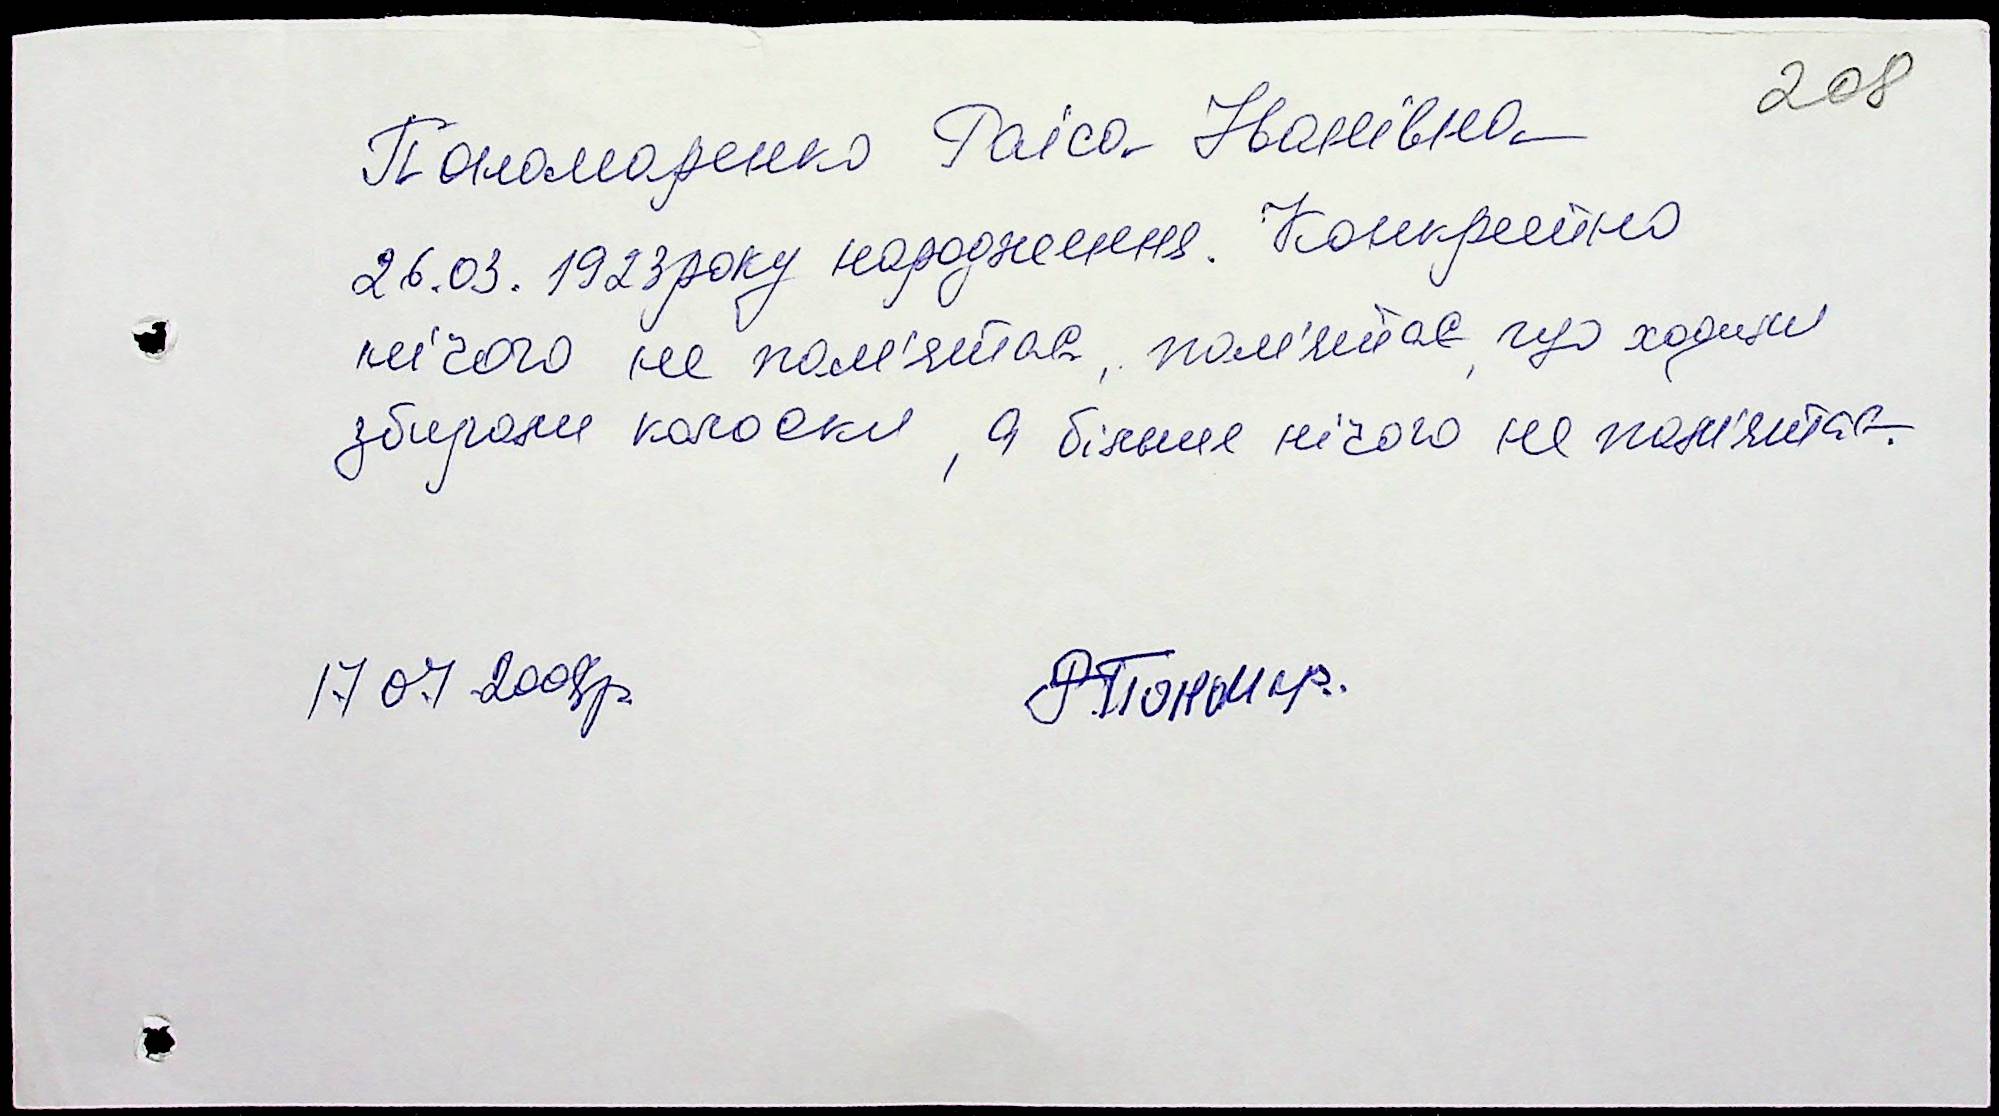 208
Пономаренко Раїса Іванівна
26.03.1923 року народження. Конкретно
нічого не пам'ятає, пам'ятає, що ходили
збирали колоски, а більше нічого не пам'ятає.
17 07 2008р. РПономар.